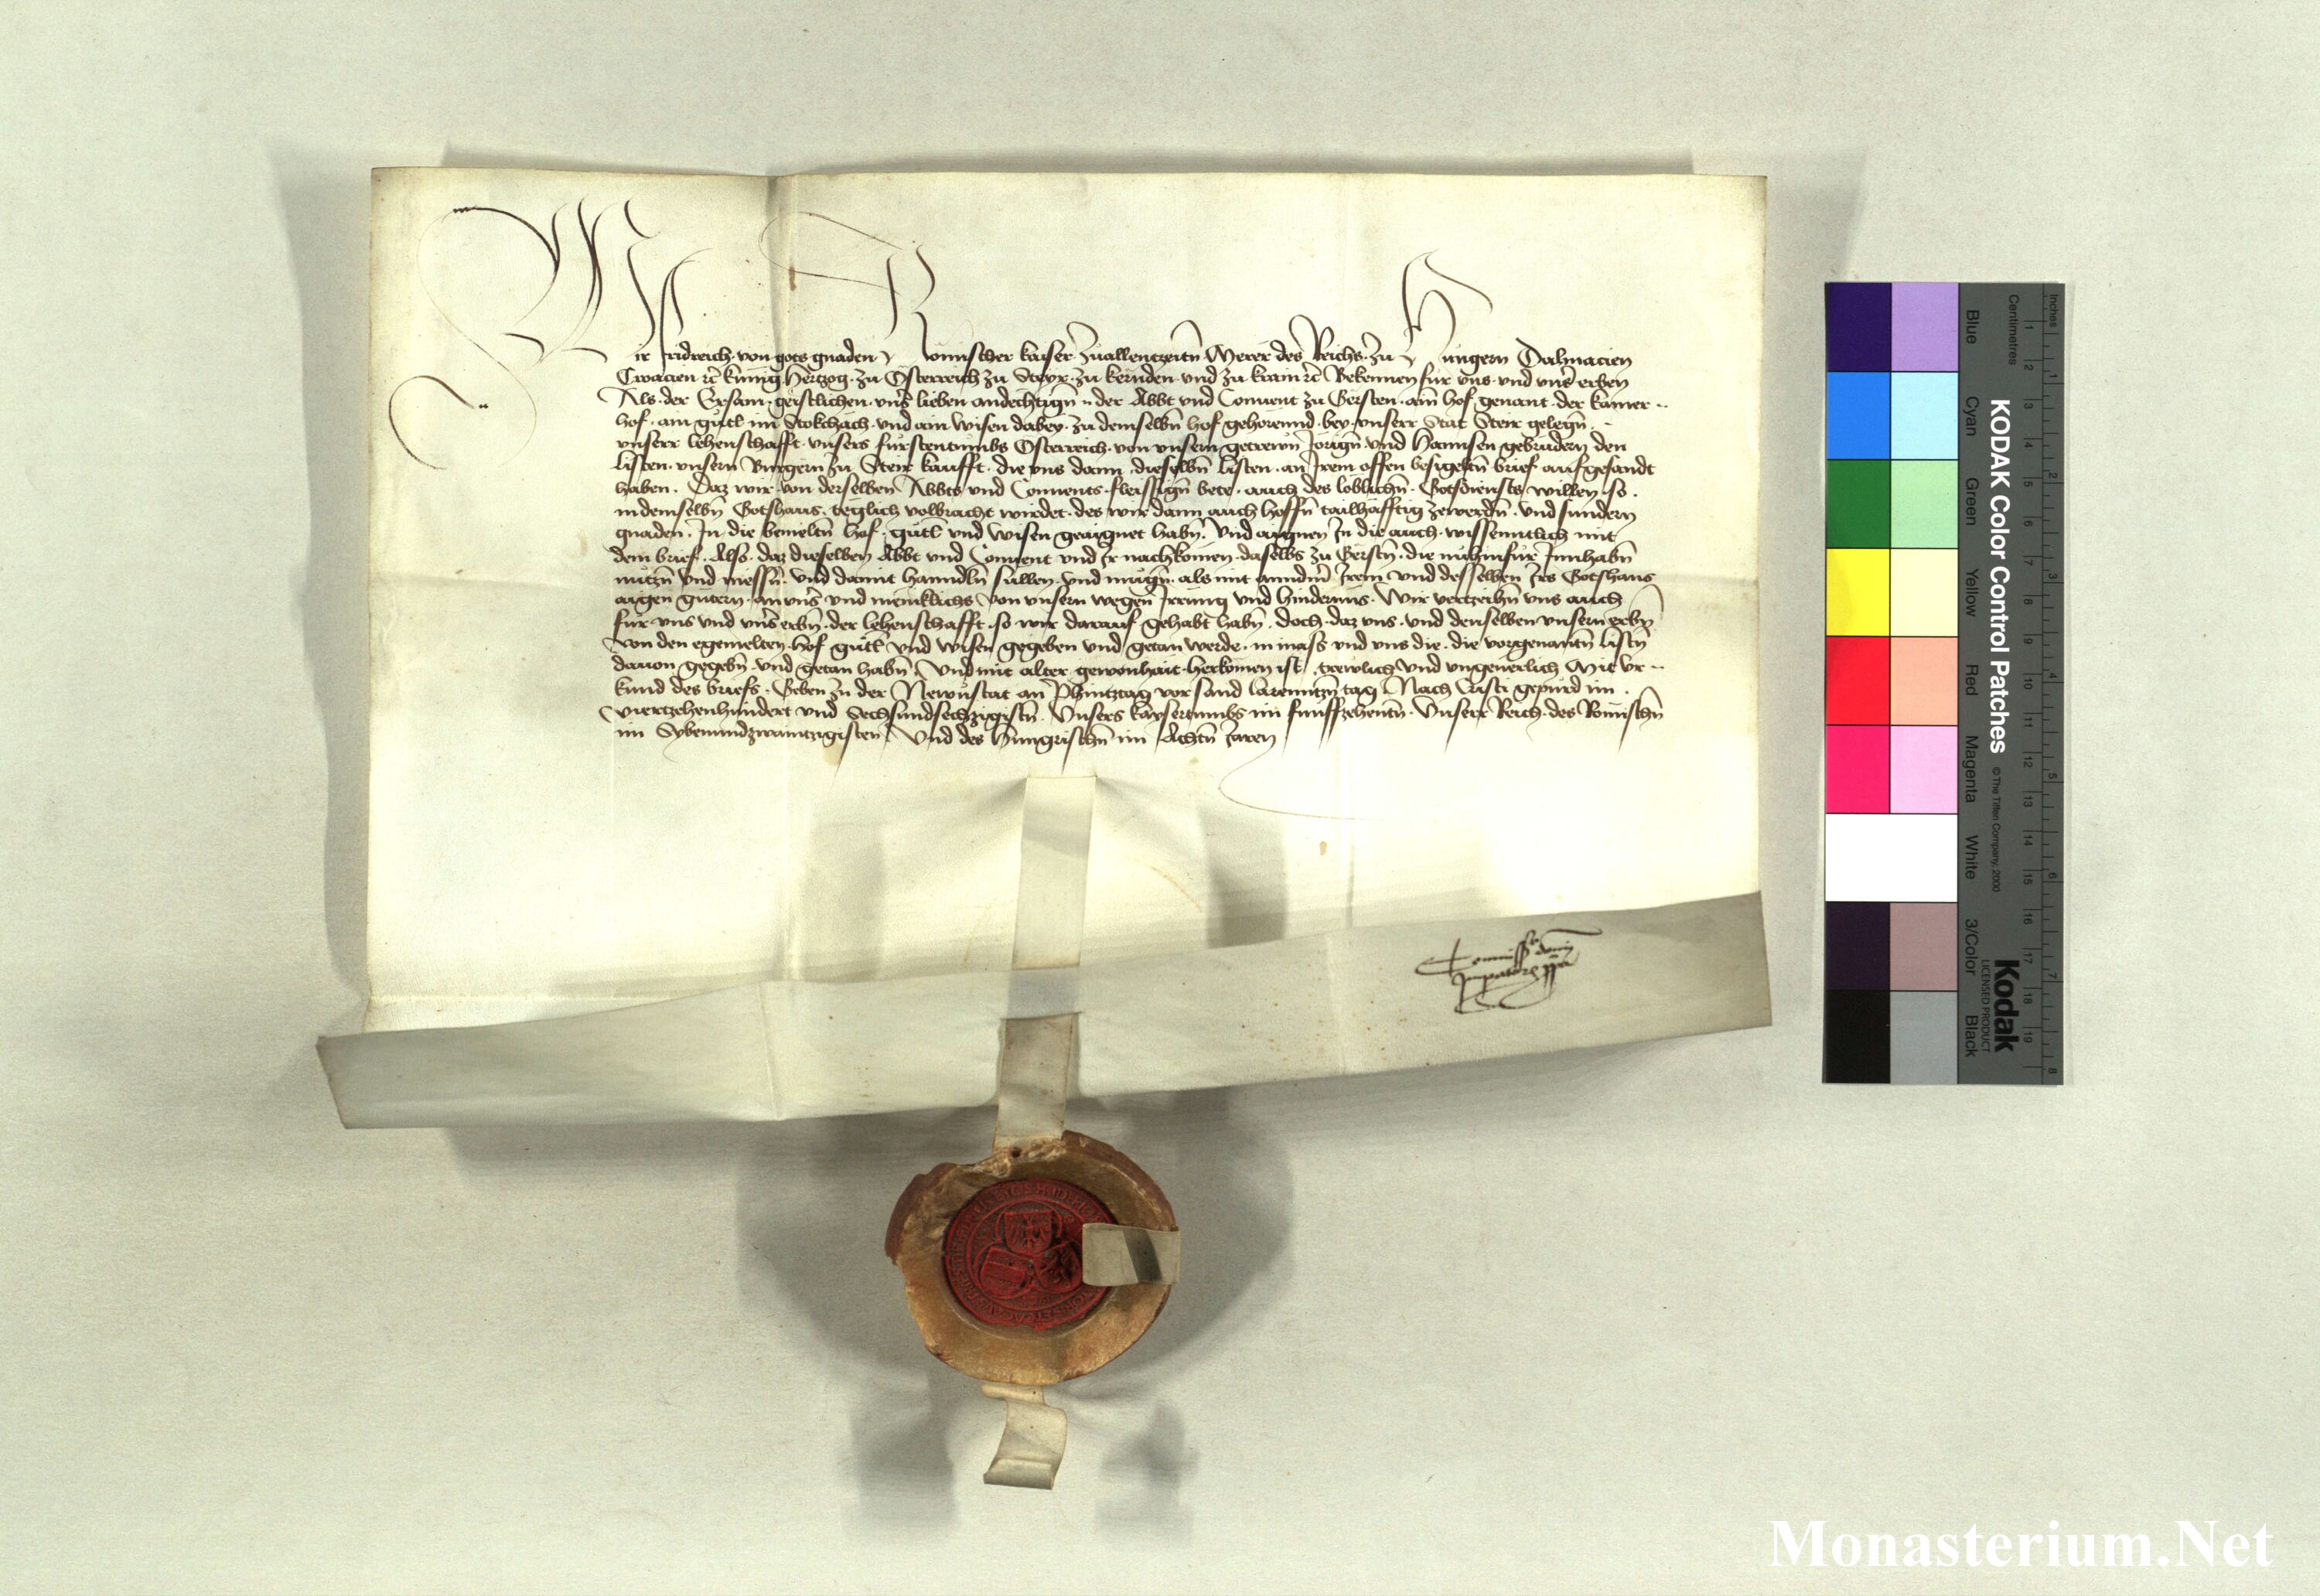 Wir Fridreich von gots gnaden Römischer kaiser zuallentzeitn Merer des Reichs zu Hungern Dalmacien
Croacien etc kunig Hertzog zu Österreich zu Steyr zu kernden und zu krain etc Bekennen für uns und unser erben
Als der Ersam geistlichen unser lieben andechtign der Abbt und Convent zu Gersten ain hof genant der kamer
hof ain gütl im Stokchach und ain wisen dabey zu demselbn hof gehorennd bey unserr Stat Steir gelegn
unserr lehenschafft unsers fürstentumbs Österreich von unsern getrewn Jorign und Hannsen gebrudern den
Listen unsern Burgern zu Steir kaufft die uns dann dieselbn Listen an Irem offen besigeltn brief aufgesandt
haben Daz wir von derselben Abbts und Convents fleissign bete auch des loblichn Gotsdiensts willen so
in demselbn Gotshaus teglich volbracht wirdet des wir dann auch hoffn tailhafftig zewerdn und sundern
gnaden In die bemeltn hof gütl und wisen geaignet habn Und aignen In die auch wissenntlich mit
dem brief Also daz dieselben Abbt und Convent und Ir nachkomen daselbs zu Gerstn die nuhinfür Innhabn
nutzn und niessn und damit hanndln sullen und mugn als mit anndern Irem und desselben Irs Gotshaus
aigen gütern an unser und meniklichs von unsern wegen Irrung und hindernus Wir vertzeihn uns auch
für uns und unser erbn der lehenschafft so wir darauf gehabt habn doch daz uns und denselben unsern erbn
von den egemelten hof gütl und wisen gegeben und getan werde in mass und uns die die vorgenantn Listn
davon gegebn und getan habn Und mit alter gewonhait herkomen ist trewlich und ungeverlich Mit ur
kund des briefs Geben zu der Newnstat an Phintztag vor sand Larenntzn tag Nach Cristi gepurd im
viertzehenhundert und Sechsundsechzigistn Unsers kaysertumbs im funffzehentn Unserr Reich des Romischn
im Sybenundzwaintzigisten Und des Hungrischn im Achtn Jaren
Commissio domini
Imperatoris propria
KODAK Color Control Patches
© The Tiffen Company, 2000
Kodak
LICENSED PRODUCT
Blue Cyan Green Yellow Red Magenta White 3/Color Black
Centimetres 1 2 3 4 5 6 7 8 9 10 11 12 13 14 15 16 17 18 19
Inches 1 2 3 4 5 6 7 8
Monasterium.Net